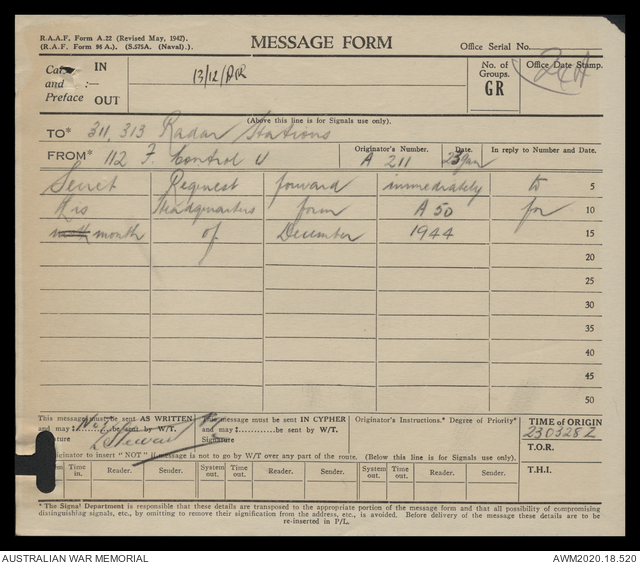 R.A.A.F. Form A.22 (Revised May, 1942).
(R.A.F. Form 96 A.). (S.575A. (Naval).).
MESSAGE FORM
Office Serial No.
IN
and :—
Preface OUT
13/12/
No. of Groups.
GR
Office Date Stamp.
(Above this line is for Signals use only).
TO* 311, 313 Radar Stations
FROM* 112 F. Control U
Originator's Number.
A 211
Date.
23 Jan
In reply to Number and Date.
Secret Request forward immediately to 5
this Headquarters form A 50 for 10
month of December 1944 15
20
25
30
35
40
45
50
This message must be sent AS WRITTEN
and may ‡ be sent by W/T.
Stewart
This message must be sent IN CYPHER
and may ‡ be sent by W/T.
Signature
Originator's Instructions.* Degree of Priority*
TIME OF ORIGIN
230328 Z
T.O.R.
T.H.I.
Originator to insert "NOT" if message is not to go by W/T over any part of the route. (Below this line is for Signals use only).
Time in. Reader. Sender. System out. Time out. Reader. Sender. System out. Time out. Reader. Sender.
* The Signal Department is responsible that these details are transposed to the appropriate portion of the message form and that all possibility of compromising
distinguishing signals, etc., by omitting to remove their signification from the address, etc., is avoided. Before delivery of the message these details are to be
re-inserted in P/L.
AUSTRALIAN WAR MEMORIAL
AWM2020.18.520